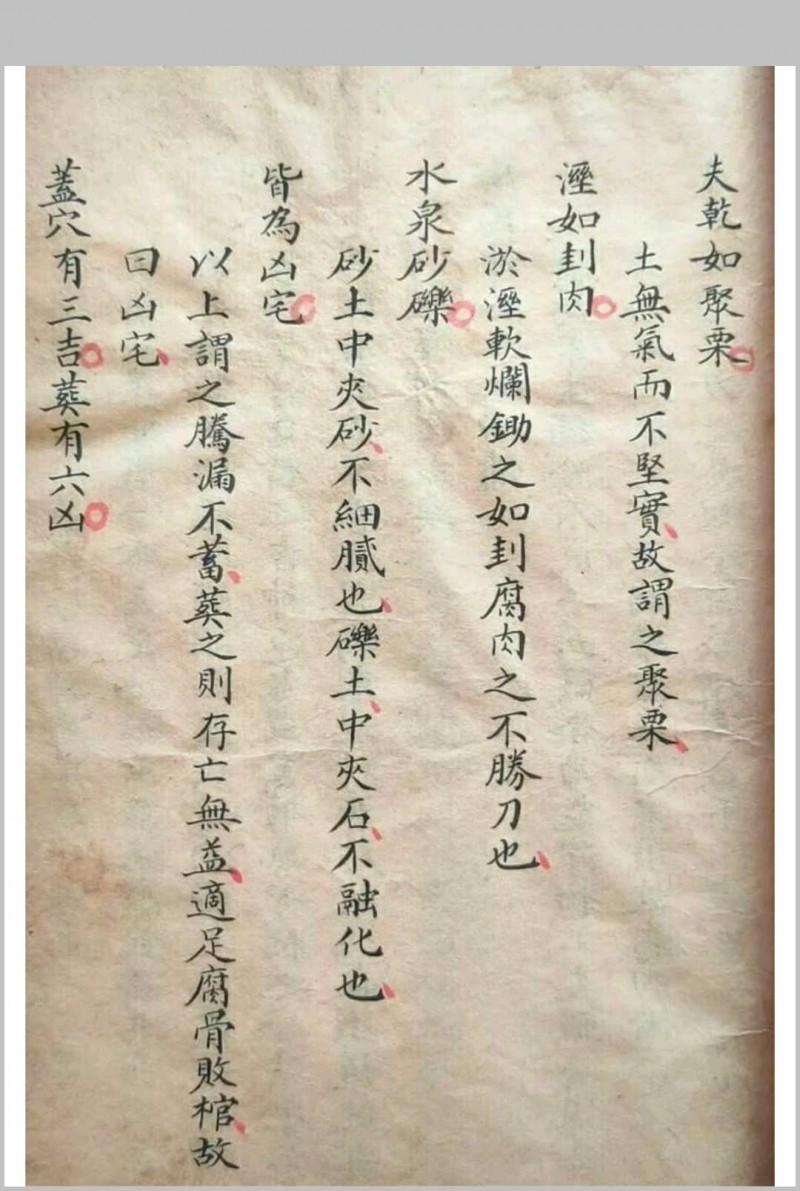 夫乾如聚栗
土無氣而不堅實故謂之聚栗
溼如刲肉
淤溼軟爛鋤之如刲腐肉之不勝刀也
水泉砂礫
砂土中夾砂不細膩也礫土中夾石不融化也
皆為凶宅
以上謂之騰漏不蓄葬之則存亡無益適足腐骨敗棺故
曰凶宅
蓋穴有三吉葬有六凶